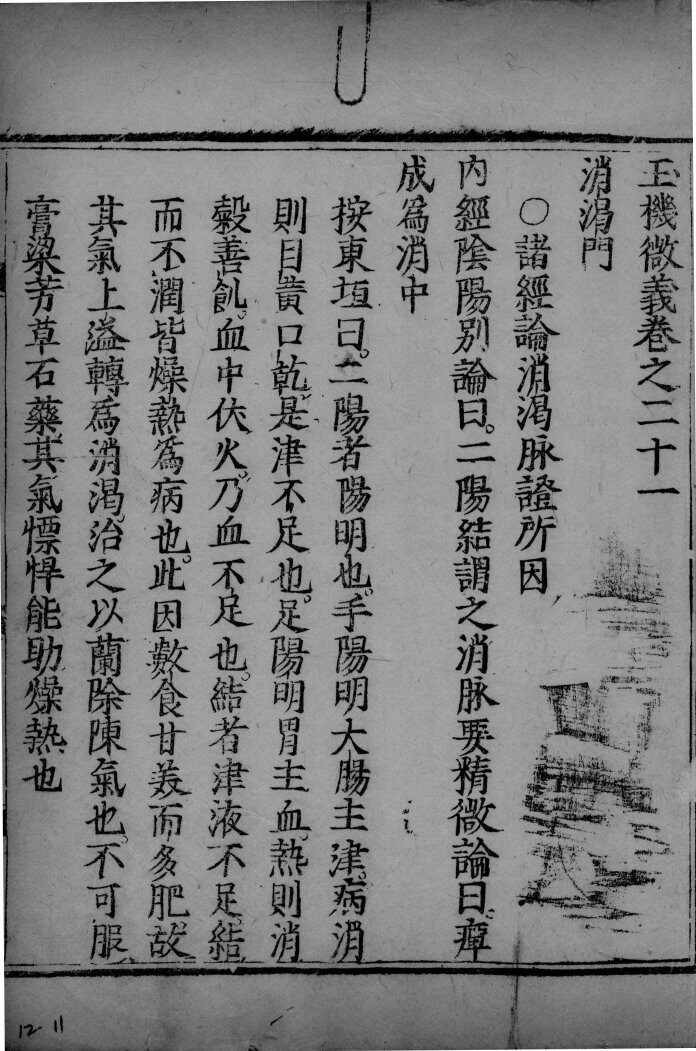 玉機微義卷之二十一
消渴門
○諸經論消渴脉證所因
內經陰陽別論曰。二陽結謂之消脉要精微論曰。癉
成為消中
按東垣曰。二陽者陽明也。手陽明大腸主津。病消
則目黃口乾。是津不足也。足陽明胃主血。熱則消
穀善飢。血中伏火。乃血不足也。結者津液不足。結
而不潤皆燥熱爲病也。此因數食甘美而多肥。故
其氣上溢轉爲消渴。治之以蘭除陳氣也。不可服
膏粱芳草石藥其氣慓悍能助燥熱也
12-11